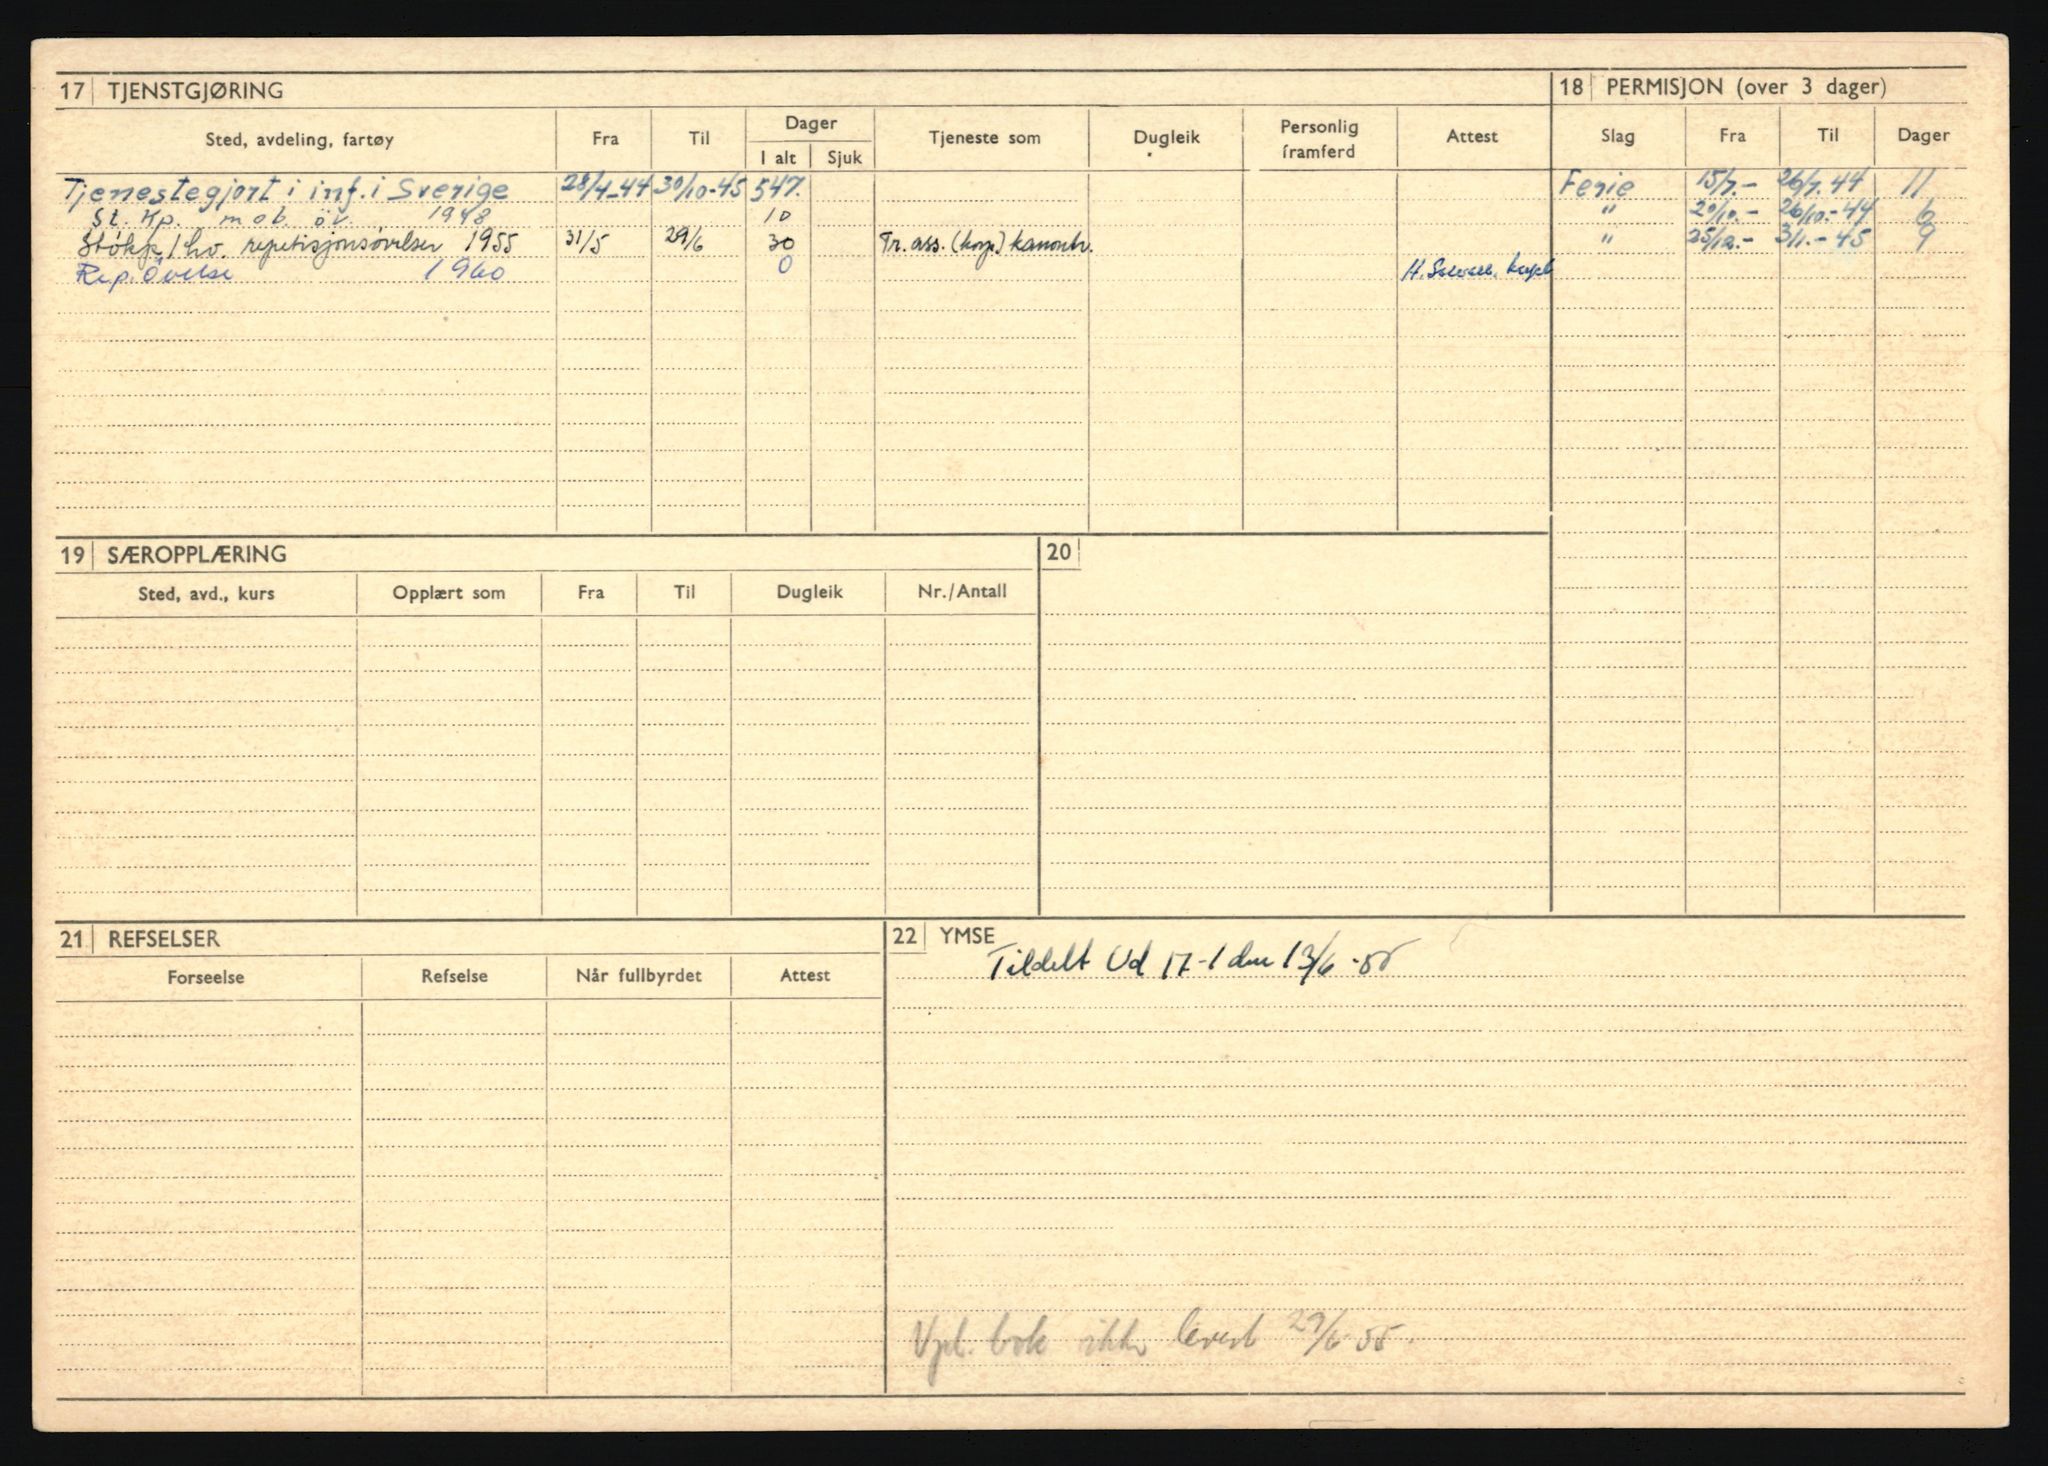 17 TJENSTGJØRING
Sted, avdeling, fartøy Fra Til Dager I alt Sjuk Tjeneste som Dugleik Personlig framferd Attest
Tjenestegjort i inf. i Sverige 28/4-44 30/10-45 547.
St. Kp. mob. øv. 1948 10
Støkp/hv. repetisjonsøvelser 1955 31/5 29/6 30 Tr. ass. (korp.) kanontr.
Rep. Øvelse 1960 0 H.
18 PERMISJON (over 3 dager)
Slag Fra Til Dager
Ferie 15/7.- 26/7.44 11
" 20/10.- 26/10.-44 6
" 25/12.- 3/1.-45 9
19 SÆROPPLÆRING
Sted, avd., kurs Opplært som Fra Til Dugleik Nr./Antall
20
21 REFSELSER
Forseelse Refselse Når fullbyrdet Attest
22 YMSE
Tildelt Ud 17-1 den 13/6-55
Vpl. bok ikke levert 29/6 55.